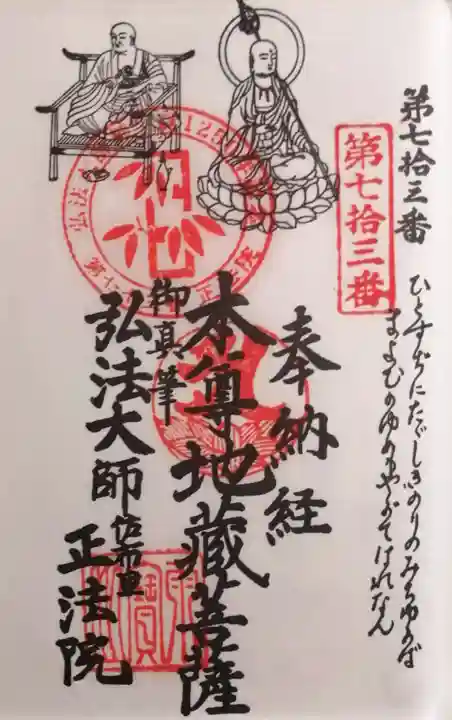 第七拾三番
第七拾三番
ひとすぢにたゞしきのりのみちゆかば
まよひのゆめもやがてはれなん
奉納経
本尊地蔵菩薩
御真筆
弘法大師
佐布里
正法院